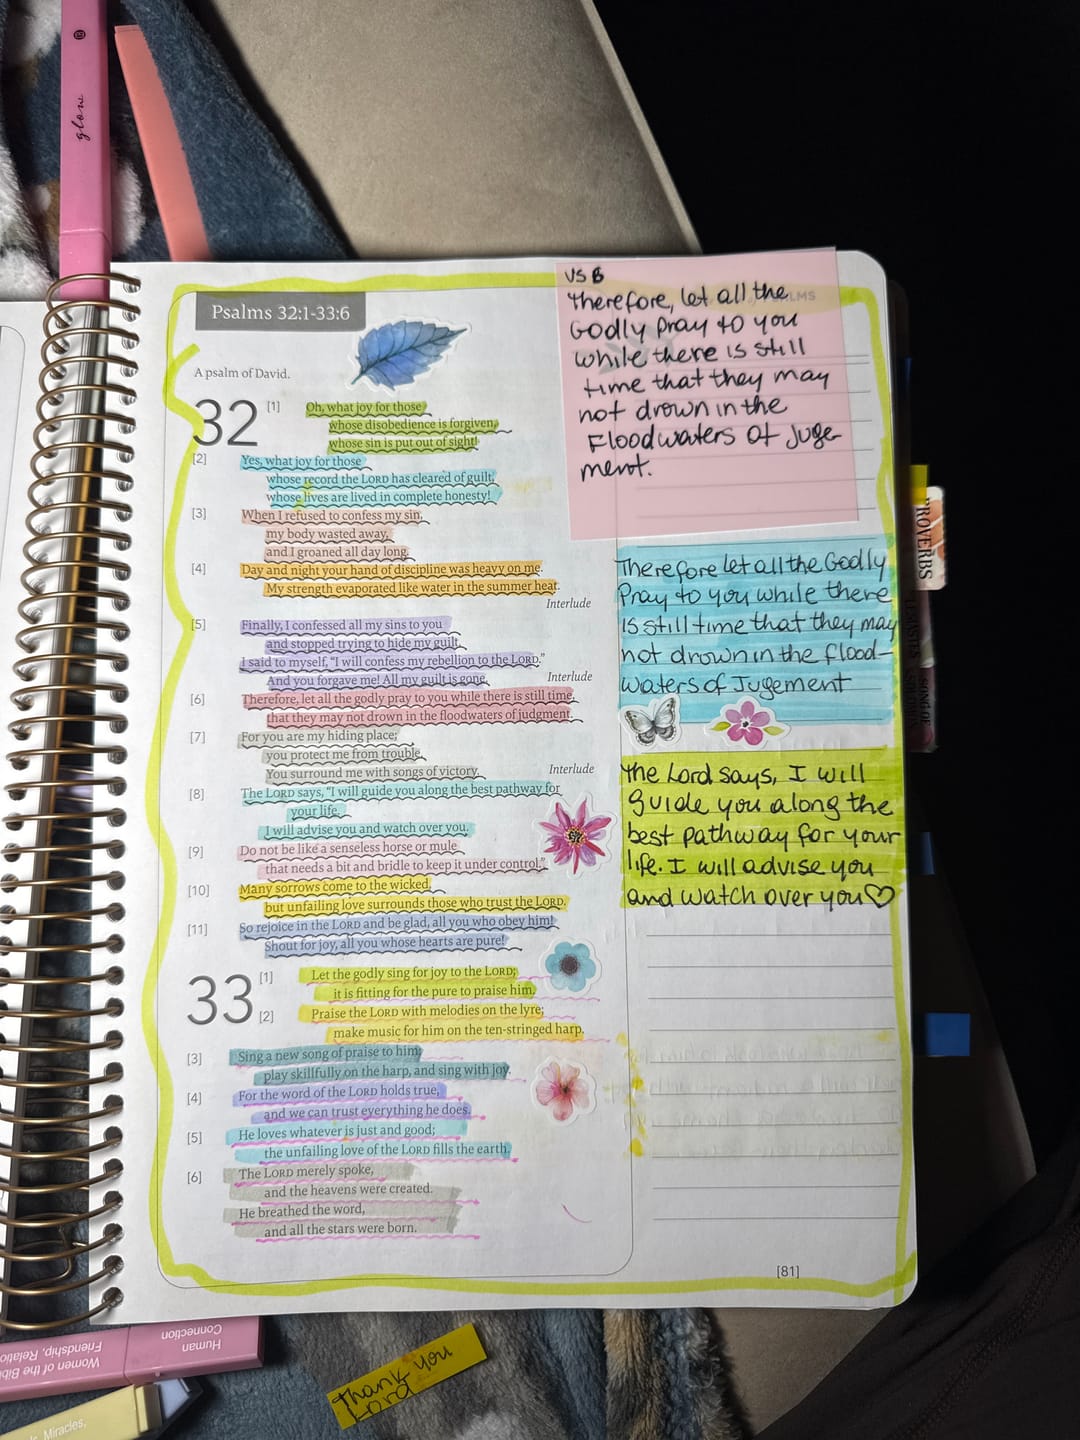 glow
Psalms 32:1-33:6
A psalm of David.
32
[1] Oh, what joy for those
whose disobedience is forgiven,
whose sin is put out of sight!
[2] Yes, what joy for those
whose record the LORD has cleared of guilt,
whose lives are lived in complete honesty!
[3] When I refused to confess my sin,
my body wasted away,
and I groaned all day long.
[4] Day and night your hand of discipline was heavy on me.
My strength evaporated like water in the summer heat.
Interlude
[5] Finally, I confessed all my sins to you
and stopped trying to hide my guilt.
I said to myself, “I will confess my rebellion to the LORD.”
And you forgave me! All my guilt is gone.
Interlude
[6] Therefore, let all the godly pray to you while there is still time,
that they may not drown in the floodwaters of judgment.
[7] For you are my hiding place;
you protect me from trouble.
You surround me with songs of victory.
Interlude
[8] The LORD says, “I will guide you along the best pathway for
your life.
I will advise you and watch over you.
[9] Do not be like a senseless horse or mule
that needs a bit and bridle to keep it under control.”
[10] Many sorrows come to the wicked,
but unfailing love surrounds those who trust the LORD.
[11] So rejoice in the LORD and be glad, all you who obey him!
Shout for joy, all you whose hearts are pure!
33
[1] Let the godly sing for joy to the LORD;
it is fitting for the pure to praise him.
[2] Praise the LORD with melodies on the lyre;
make music for him on the ten-stringed harp.
[3] Sing a new song of praise to him;
play skillfully on the harp, and sing with joy.
[4] For the word of the LORD holds true,
and we can trust everything he does.
[5] He loves whatever is just and good;
the unfailing love of the LORD fills the earth.
[6] The LORD merely spoke,
and the heavens were created.
He breathed the word,
and all the stars were born.
VS 6
Therefore, let all the
Godly pray to you
while there is still
time that they may
not drown in the
Floodwaters of Juge-
ment.
Therefore let all the Godly
Pray to you while there
is still time that they may
not drown in the flood-
waters of Jugement
The Lord says, I will
guide you along the
best pathway for your
life. I will advise you
and watch over you♡
[81]
PROVERBS
SONG OF
Human
Connection
Women of the
Friendship,
Miracles,
Thank you
Lord